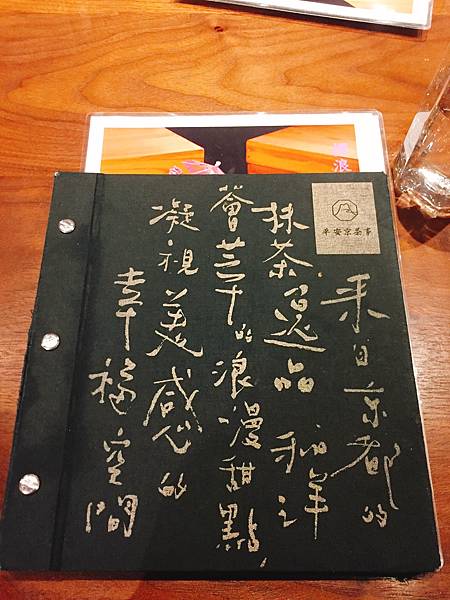 平安京茶事
来自京都的
抹茶逸品 和洋之
薈萃的浪漫甜點,
凝視美感的
幸福空間
浪